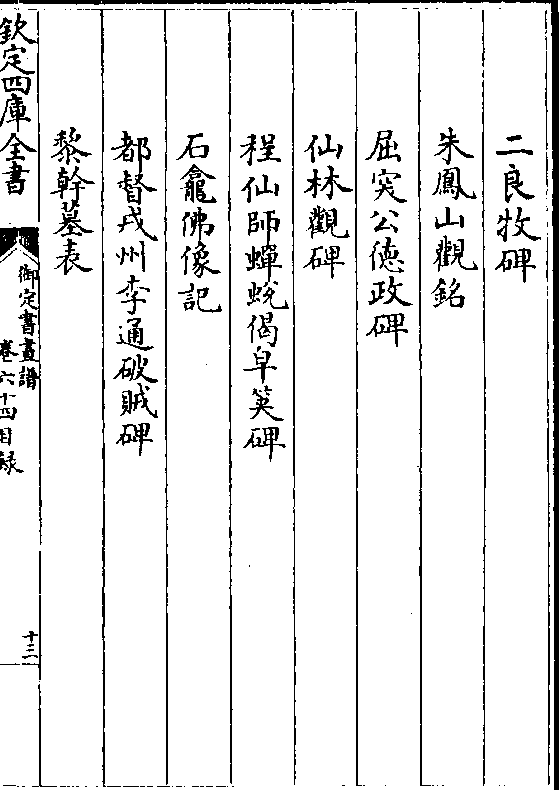 二良牧碑
朱鳳山觀銘
屈突公德政碑
仙林觀碑
程仙師蟬蛻偈皁莢碑
石龕佛像記
都督戎州李通破賊碑
黎幹墓表
欽定四庫全書
御定書畫譜
卷六十四目録
十三